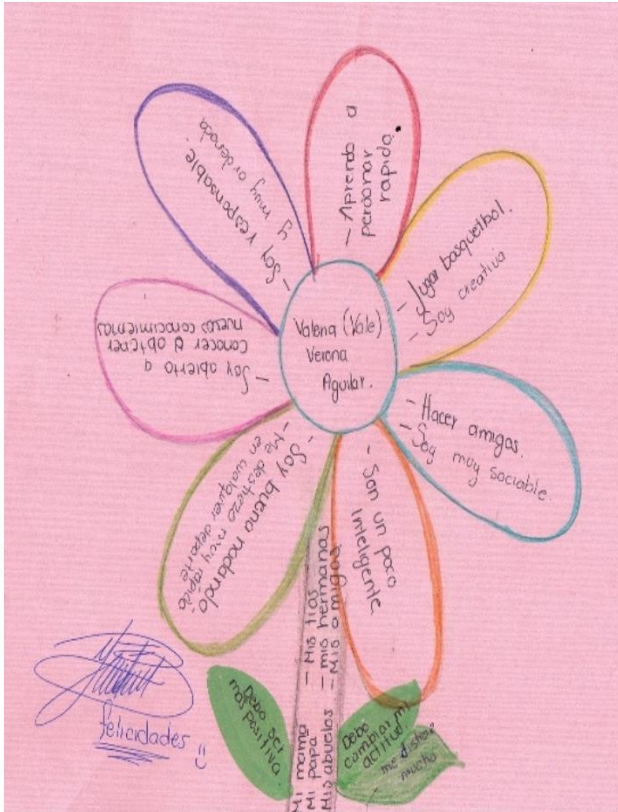 Valeria (Vale)
Verona
Aguilar.
- Aprendo a
perdonar
rapido.
- Jugar basquetbol.
- Soy creativa
- Hacer amigos.
- Soy muy sociable.
- Son un poco
inteligente
- Soy bueno nadando
- Me destrezo muy rapido
en cualquier deporte
- Soy abierto a
conocer a obtener
nuevos conocimientos
- Soy responsable
y muy ordenada
Mi mama
Mi papa
Mis abuelos
- Mis tios
- mis hermanas
- Mis amigos
Debo ser
mas positiva
Debo
cambiar mi
actitud
me distraigo
mucho
felicidades